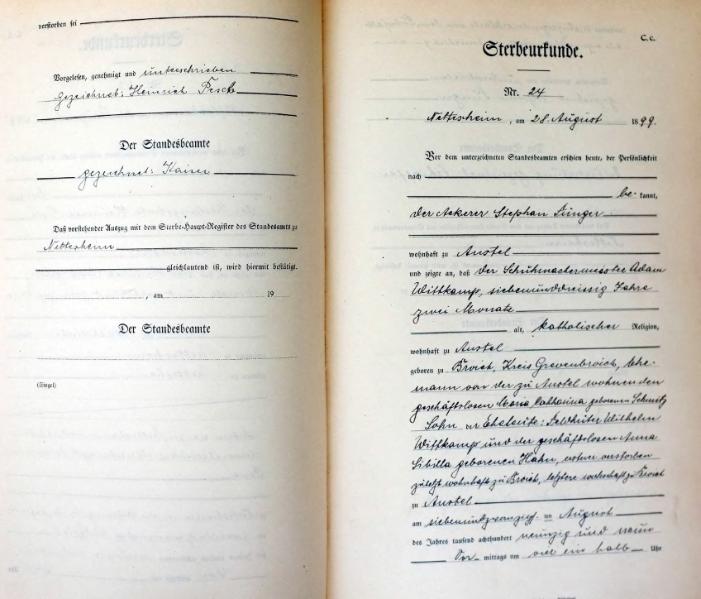 verstorben sei
Vorgelesen, genehmigt und unterschrieben
gezeichnet: Heinrich Pesch
Der Standesbeamte
gezeichnet: Kaiser
Daß vorstehender Auszug mit dem Sterbe-Haupt-Register des Standesamts zu
Nettersheim
gleichlautend ist, wird hiermit bestätigt.
, am 19
Der Standesbeamte
(Siegel)
C. c.
Sterbeurkunde.
Nr. 24
Nettersheim, am 28. August 1899.
Vor dem unterzeichneten Standesbeamten erschien heute, der Persönlichkeit
nach
be- kannt,
der Ackerer Stephan Jünger
wohnhaft zu Anstel
und zeigte an, daß der Schuhmachermeister Adam
Wittkamp, siebenunddreissig Jahre
zwei Monate
alt, katholischer Religion,
wohnhaft zu Anstel
geboren zu Broich, Kreis Grevenbroich, Ehe-
mann von der zu Anstel wohnenden
geschäftslosen Maria Catharina geborenen Schmitz
Sohn der Eheleute: Feldhüter Wilhelm
Wittkamp und der geschäftslosen Anna
Sibilla geborenen Hahn, erstrer verstorben
zuletzt wohnhaft zu Broich, letztere wohnhaft zu Broich
zu Anstel
am siebenundzwanzigs- ten August
des Jahres tausend achthundert neunzig und neun
Vor- mittags um ein halb Uhr